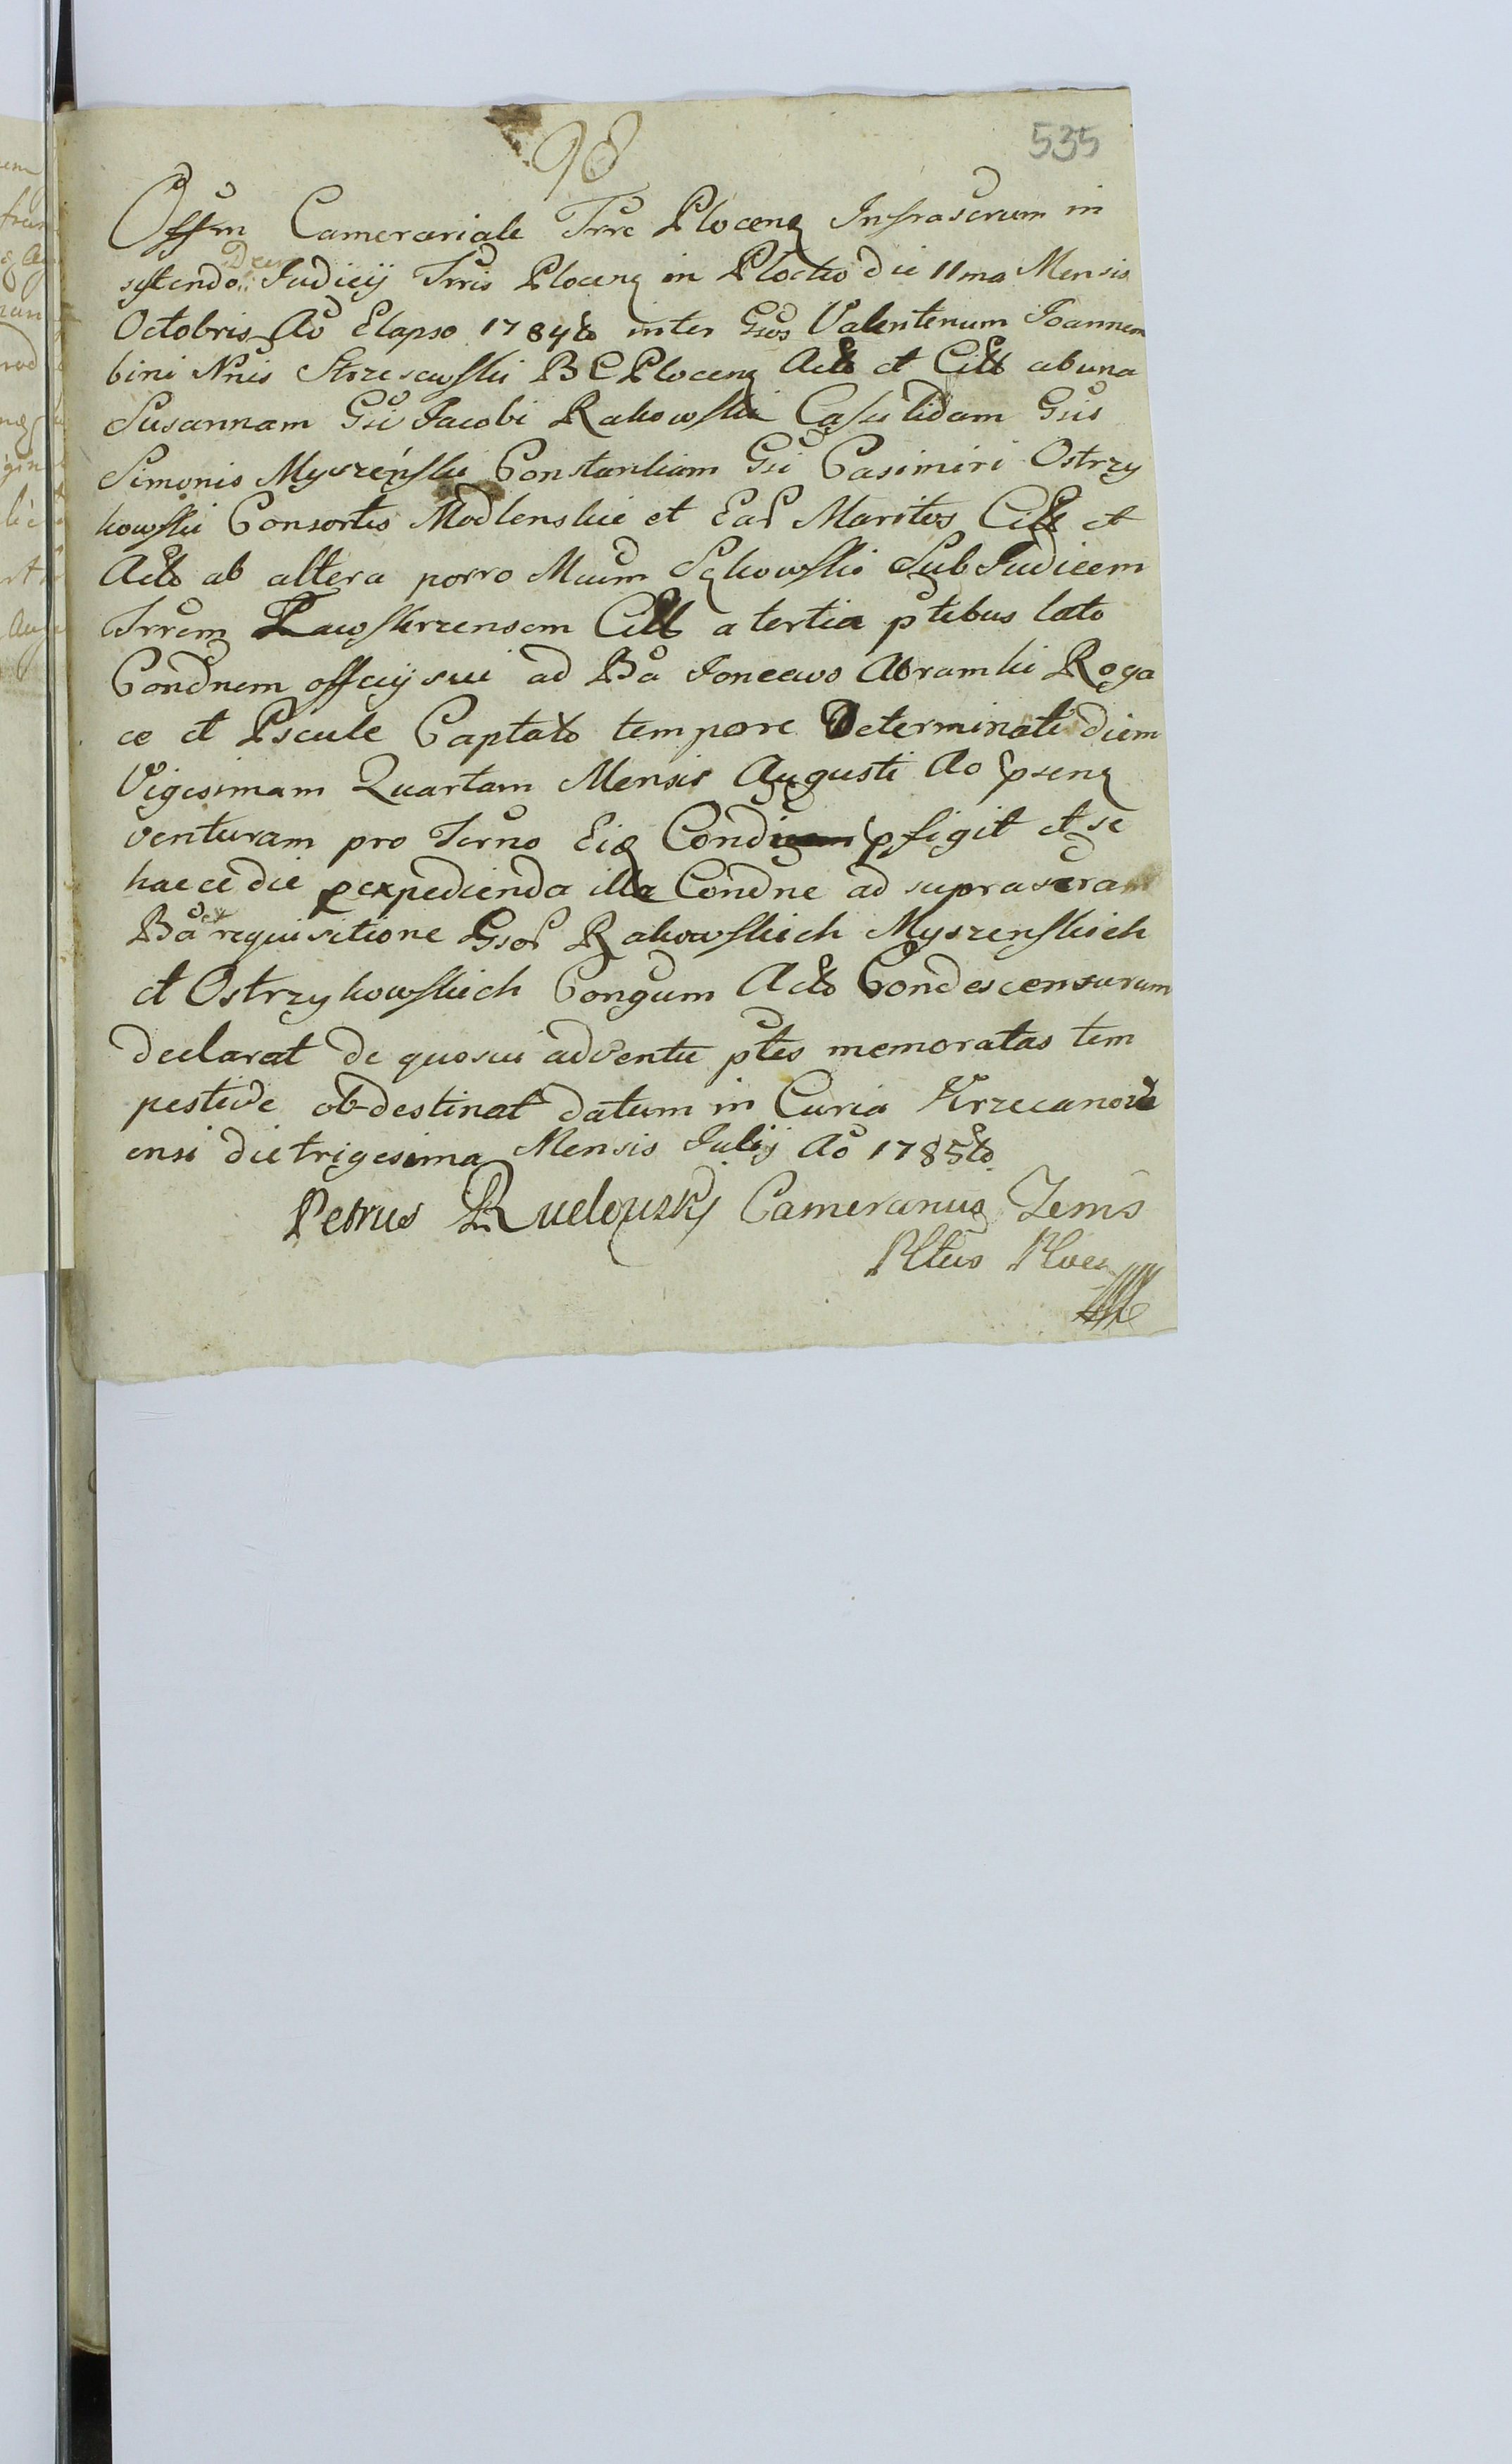 98
535
Offm Camerariale Trre Plocenq Infrascrum in
systendo Decr Judicij Trris Plocenq in Plocko die 11ma Mensis
Octobris Ao Elapso 1784to inter Gsos Valentenum Joannem
bini Nnis Strzeszewski B C Plocenq Act et Cit ab una
Susannam Gsi Jacobi Rakowski Casu lidam Gsis
Simonis Myszeński Constantiam Gsi Casimiri Ostrzy
kowski Consortes Modlenskie et Ear Maritos Cit et
Act ab altera porro Mcum Sękowski Sub Judicem
Trrem Zawskrzensem Cit a tertia ptibus lato
Condnem officij sui ad Ba Joncewo Abramki Roga
ce et Pscule Captato tempore Determinati diem
Vigesimam Quartam Mensis Augusti Ao psenq
venturam pro Terno Eiq Condi pfigit et se
hacce die pexpedienda illa Condne ad suprascram
Ba ex requisitione Gsor Rakowskich Myszenskich
et Ostrzykowskich Congum Act Condescensurum
declarat de quo sui adventu ptes memoratas tem
pestive obdestinat datum in Curia Krzecanow
ensi die trigesima Mensis Julij Ao 1785to
Petrus Rudowsky Cameranus Zems
Pltus Ploc